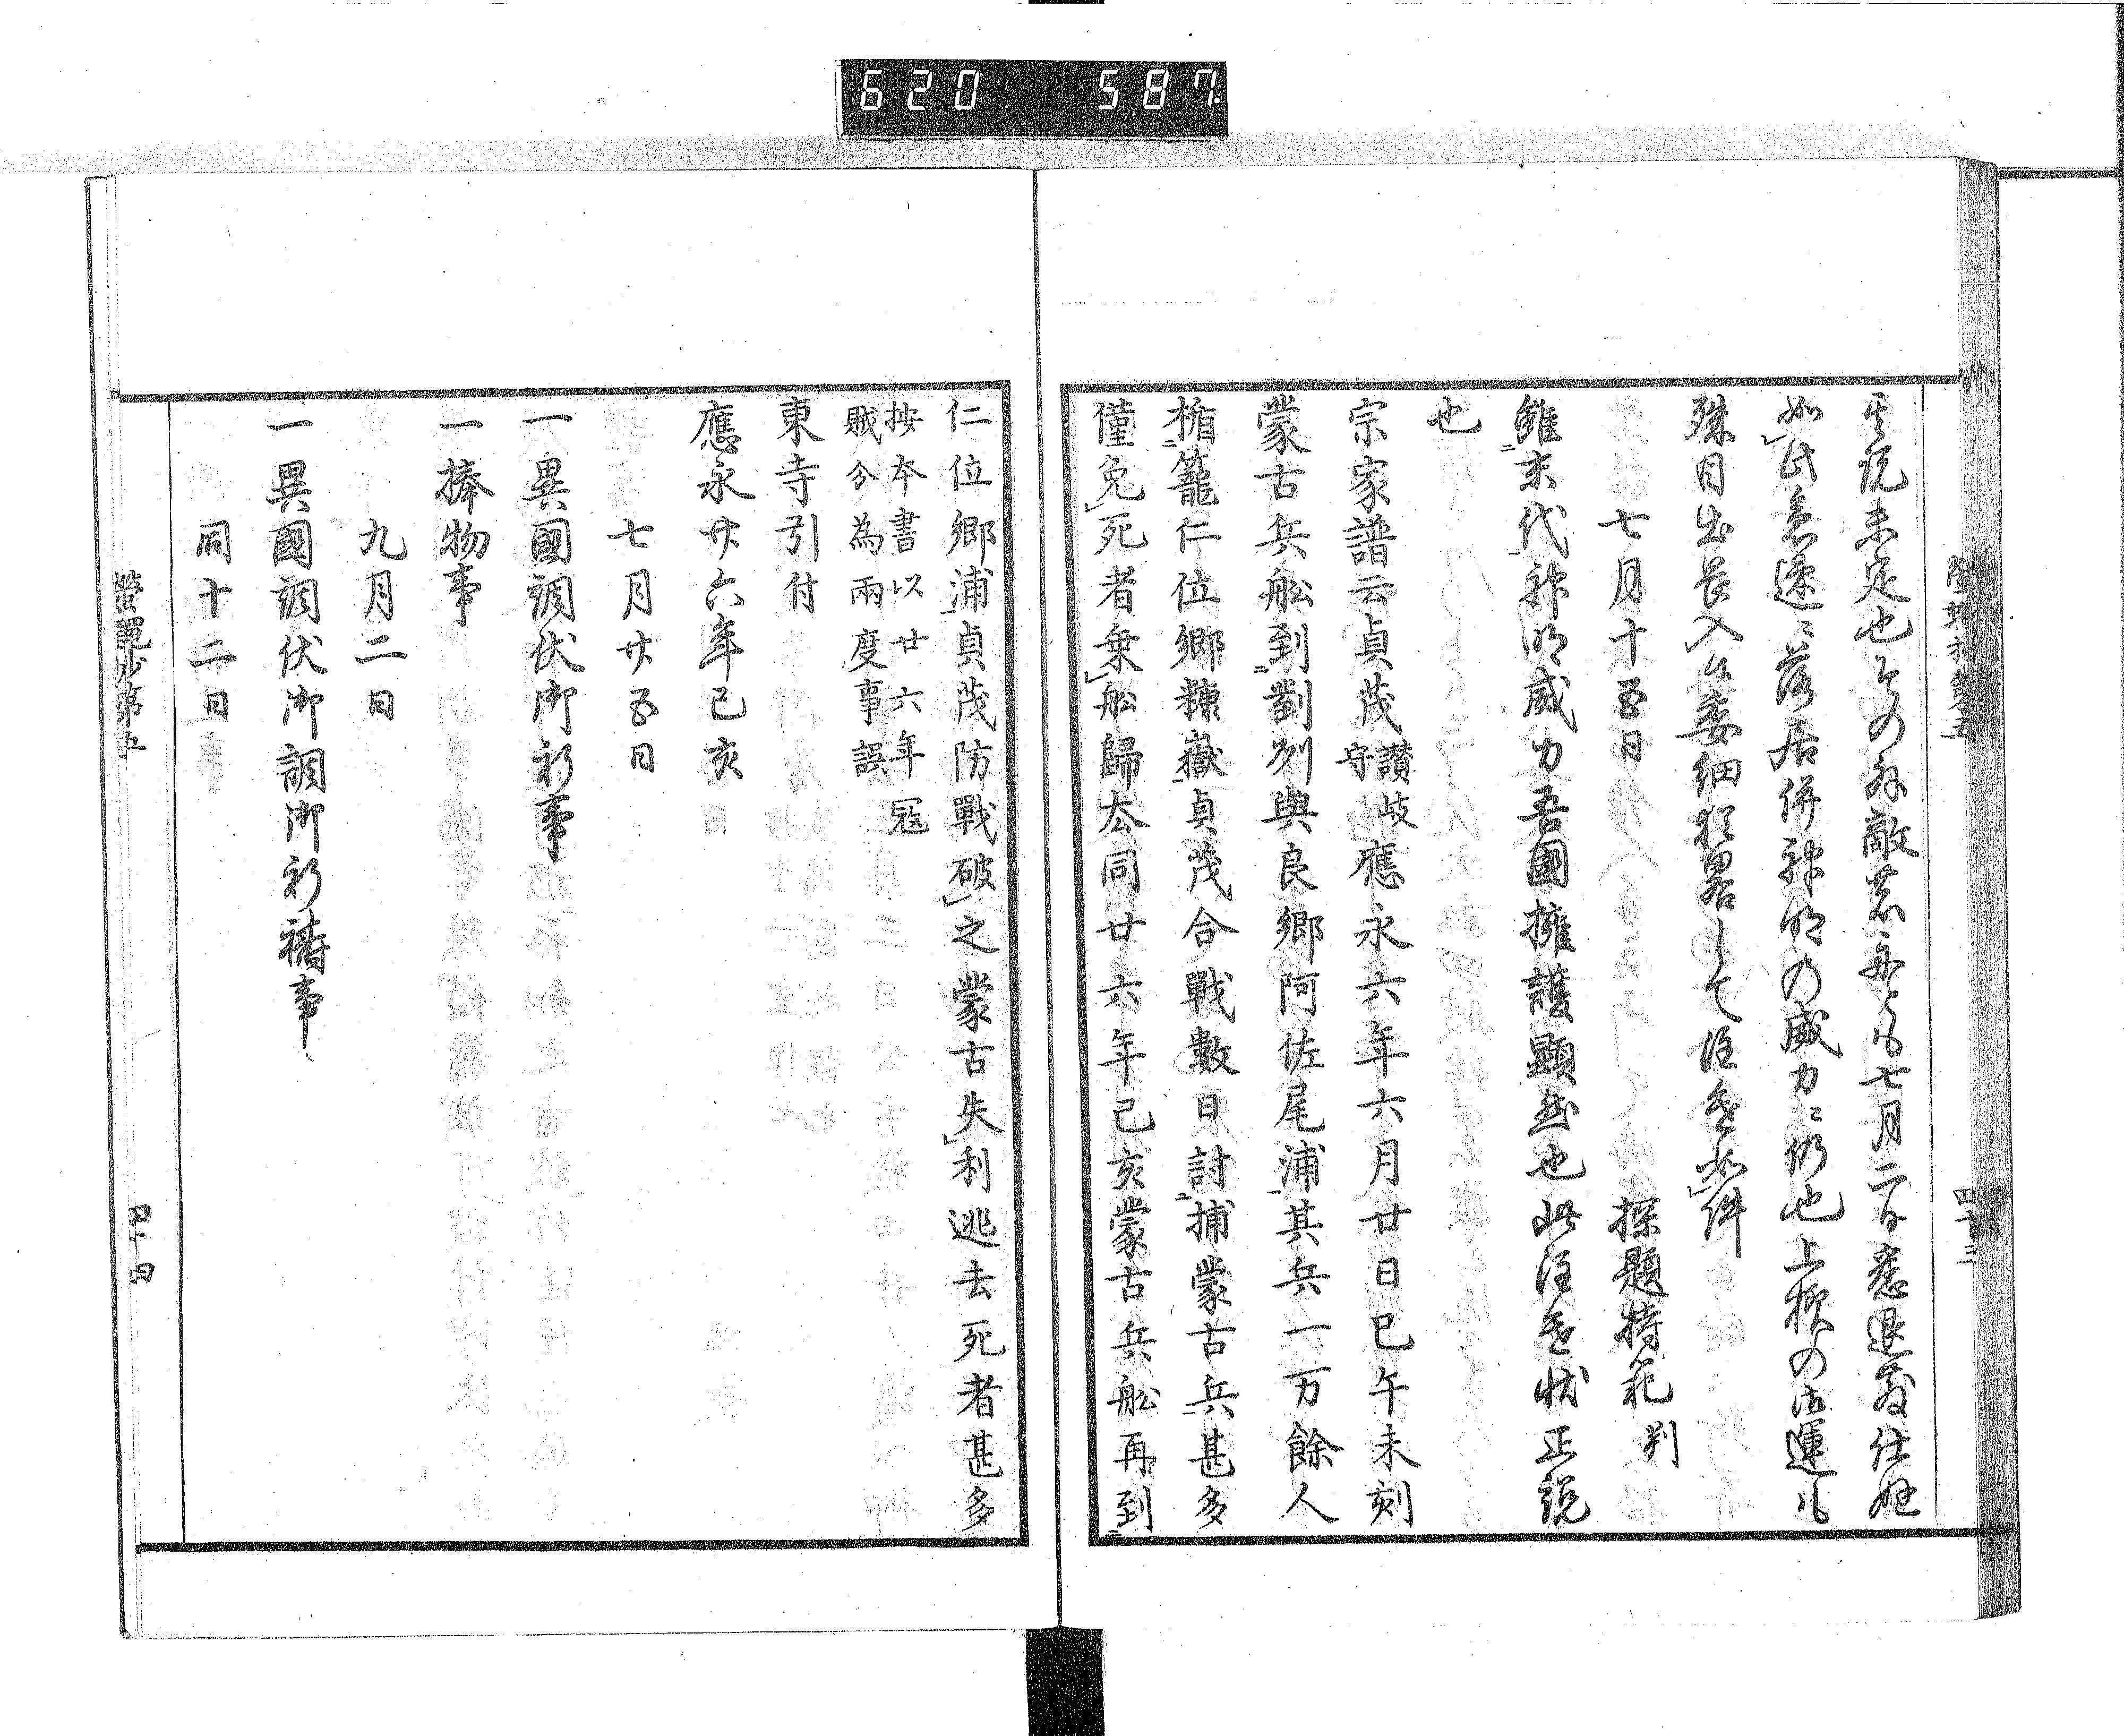 620 587
実説未定也そのあ敵
七月二日悉退
如此急速ニ落居併神明の威力ニ仍也上様の御運も
殊目出
入候委細
して注進如件
七月十五日 探題持範判
雖ニ末代神明威力吾國擁護顕然也此注進状正説
也
宗家譜云貞茂讃岐守應永六年六月廿日巳午未刻
蒙古兵舩到ニ對刕與良郷阿佐尾浦其兵一万餘人
楯ニ籠仁位郷糠嶽貞茂合戰數日討ニ捕蒙古兵甚多
僅免死者乗舩歸厺同廿六年己亥蒙古兵舩再到ニ
仁位郷浦貞茂防戰破之蒙古失利逃去死者甚多
按本書以廿六年冦
賊分為兩度事誤
東寺引付
應永廿六年己亥
七月廿五日
一異國調伏御祈事
一捧物事
九月二日
一異國調伏御調御祈禱事
同十二日
螢蠅抄第五
四十四